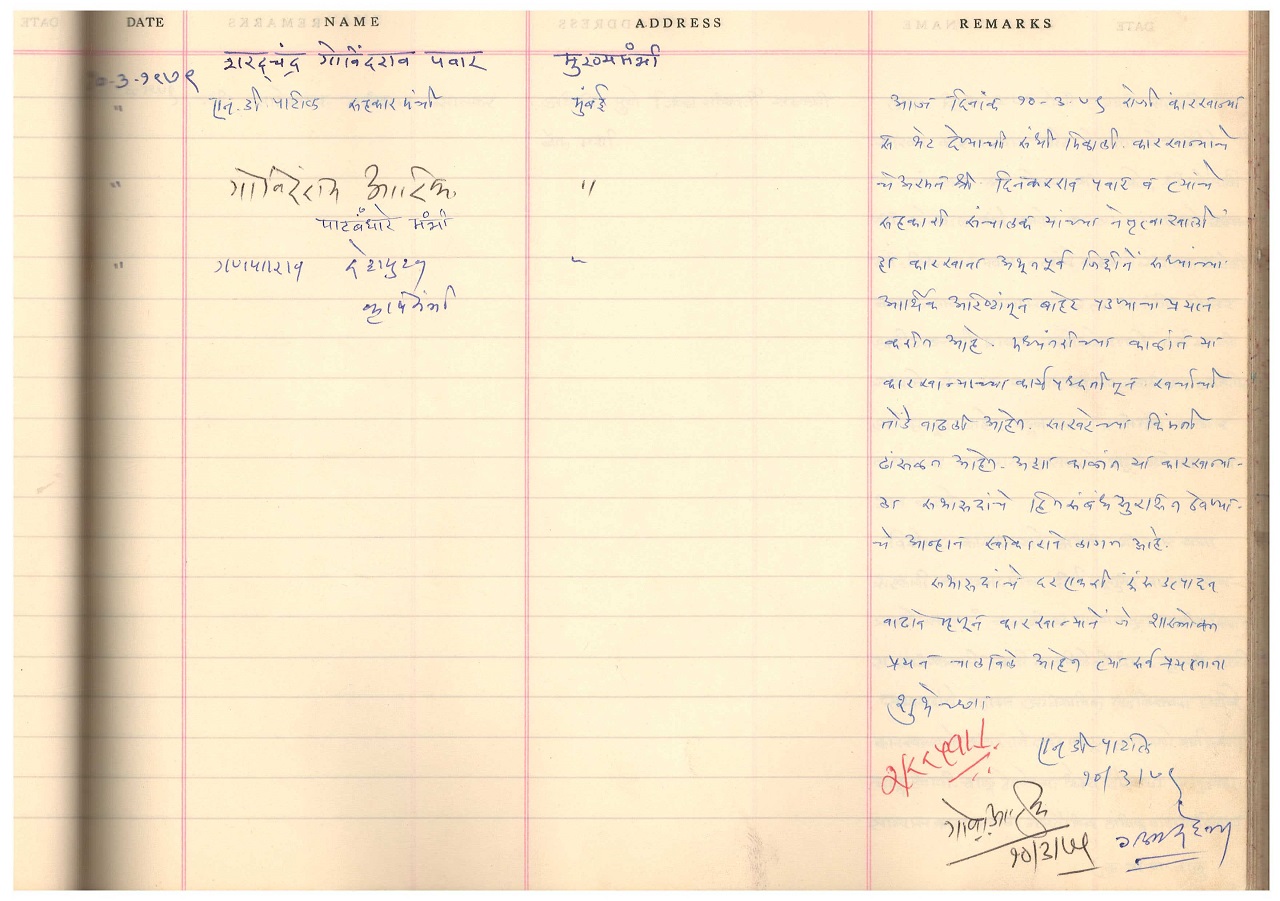 DATE NAME ADDRESS REMARKS
१०-३-१९७९ शरद्चंद्र गोविंदराव पवार मुख्यमंत्री
" एन. डी. पाटील सहकार मंत्री मुंबई
" गोविंदराव आदिक "
पाटबंधारे मंत्री
" गणपतराव देशमुख "
कृषिमंत्री
आज दिनांक १०-३-७९ रोजी कारखान्या
स भेट देण्याची संधी मिळाली. कारखान्याचे
चेअरमन श्री. दिनकरराव पवार व त्यांचे
सहकारी संचालक यांच्या नेतृत्वाखाली
हा कारखाना अभूतपूर्व जिद्दीने सध्यांच्या
आर्थिक अरिष्टांतून बाहेर पडण्याचा प्रयत्न
करीत आहे. मध्यंतरीच्या काळांत या
कारखान्याच्या कार्यपध्दतीतून खर्चाची
तोंडे वाढली आहेत. साखरेच्या किंमती
ढांसळत आहेत. अशा काळांत या कारखान्या-
ला सभासदांचे हितसंबंध सुरक्षित ठेवण्या-
चे आव्हान स्वीकारावे लागत आहे.
सभासदांचे दर एकरी ऊंस उत्पादन
वाढावे म्हणून कारखान्याने जे शास्त्रोक्त
प्रयत्न चालविले आहेत त्या सर्व प्रयत्नाना
शुभेच्छा
शरद पवार
एन. डी. पाटील
१०/३/७९
१०/३/७९